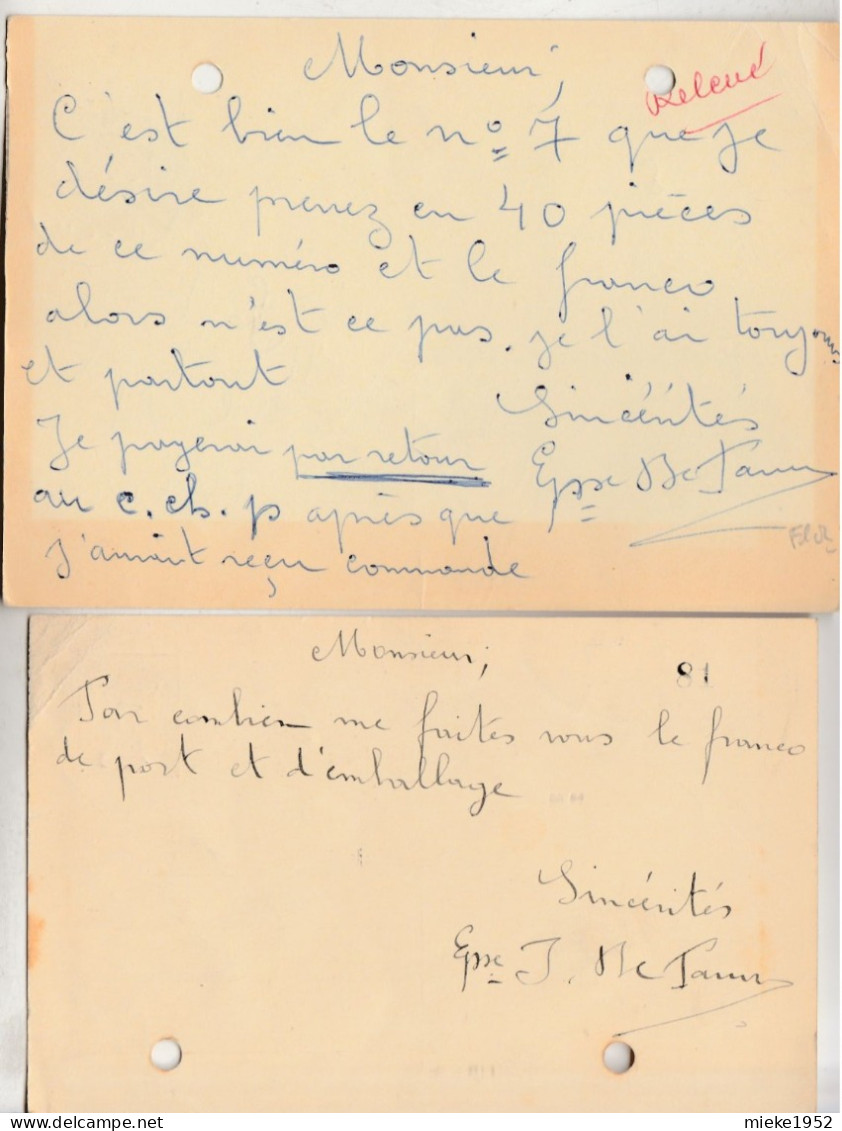 Monsieur,
Relevé
C'est bien le nº 7 que je
désire prenez en 40 pièces
de ce numéro et le franco
alors n'est ce pas. je l'ai toujours
et partout
Sincérités
Je payerai par retour
Epse De
au c.ch.p après que
j'aurait reçu commande
Monsieur,
81
Par combien me faites vous le franco
de port et d'emballage
Sincérités
Epse J. De
mieke1952